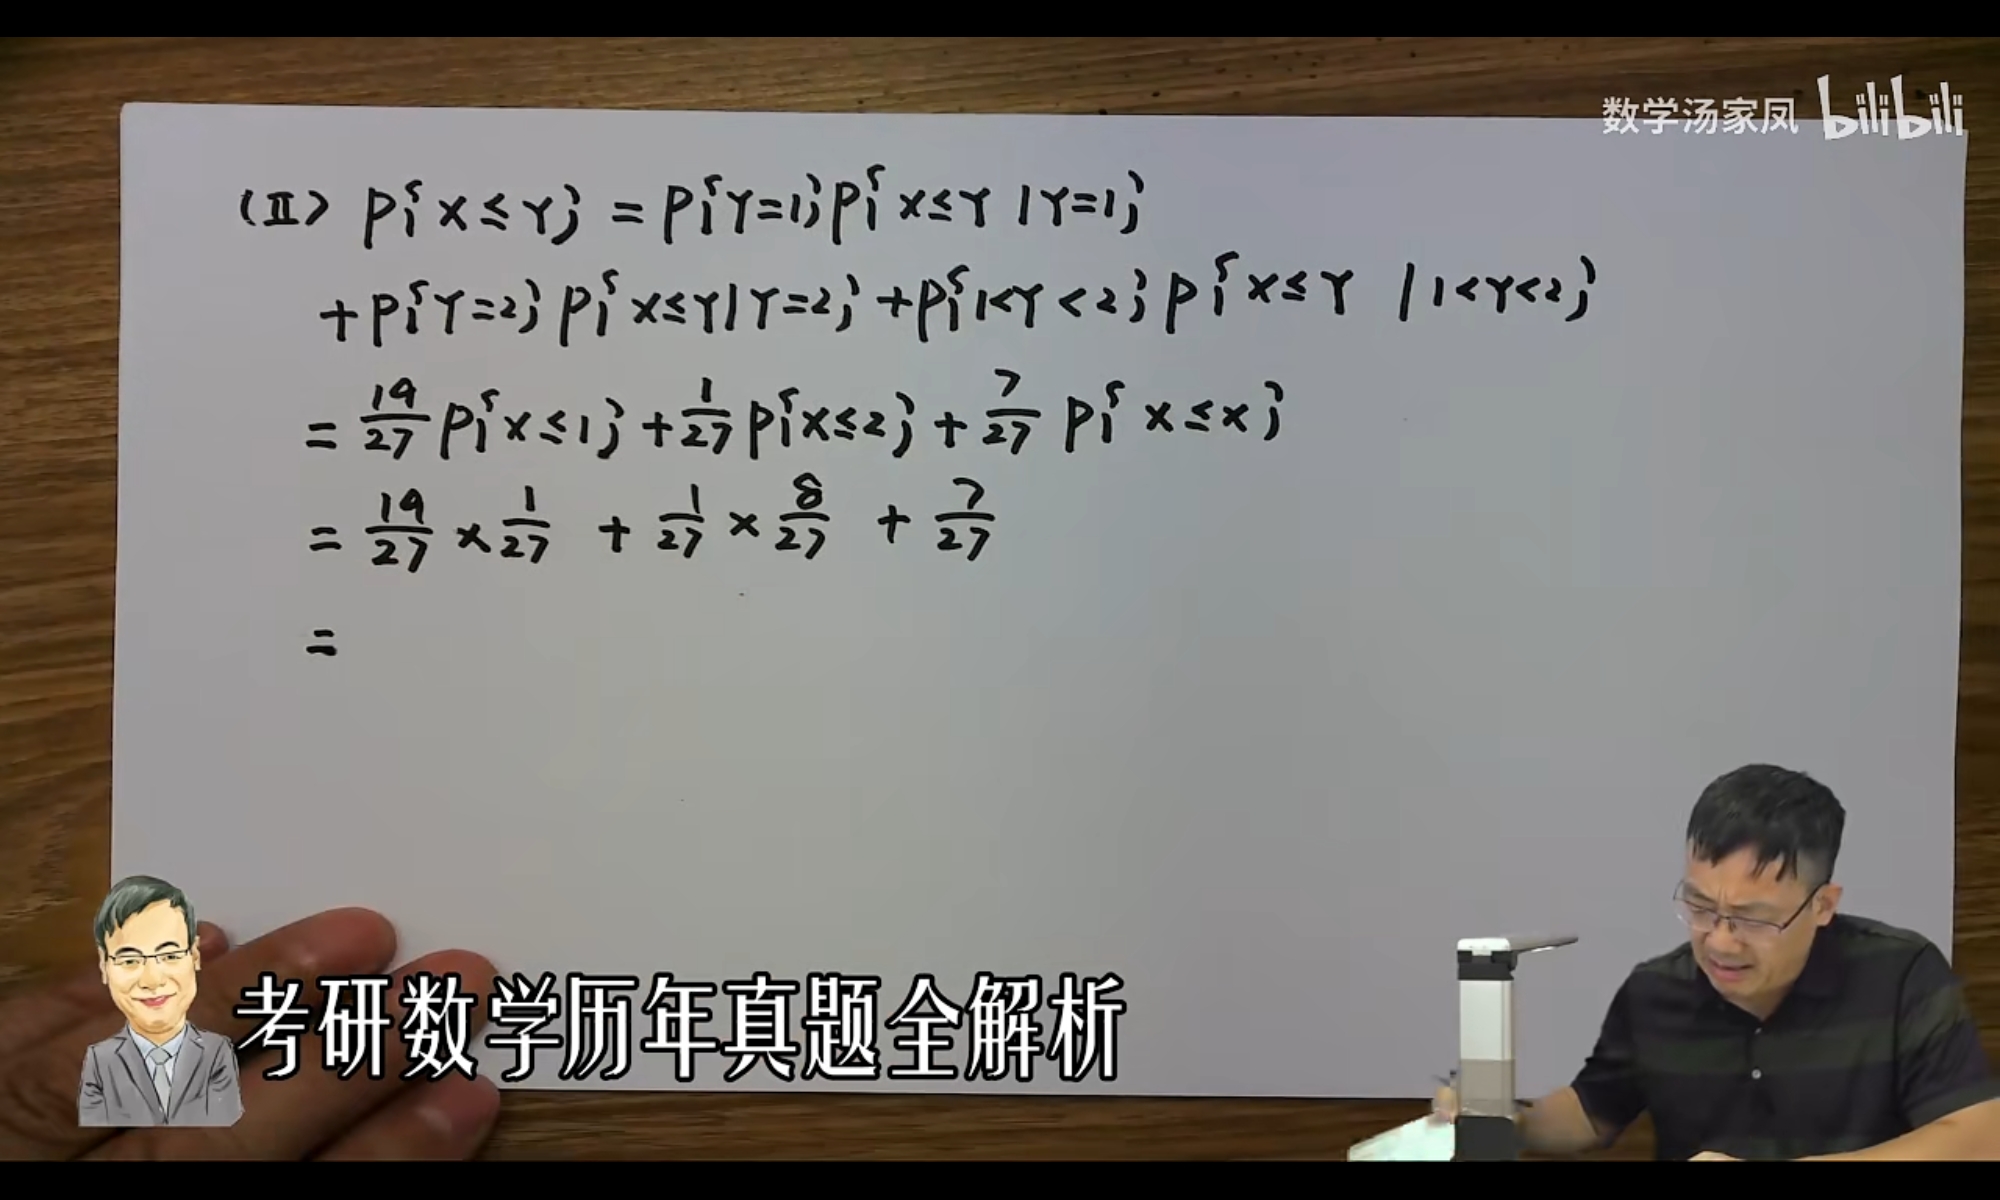 数学汤家凤 bilibili
(Ⅱ) P{X≤Y} = P{Y=1}P{X≤Y|Y=1}
+P{Y=2}P{X≤Y|Y=2}+P{1<Y<2}P{X≤Y|1<Y<2}
= 19/27 P{X≤1}+1/27 P{X≤2}+7/27 P{X≤X}
= 19/27 × 1/27 + 1/27 × 8/27 + 7/27
=
考研数学历年真题全解析